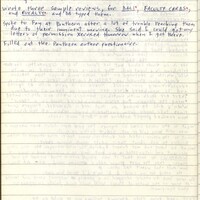 Wrote three sample reviews, for BALI, FACULTY CARDS,
and and typed them.
Spoke to Peg at Pantheon after a lot of trouble reaching them
due to their imminent moving. She said I could get my
letters of permission Xeroxed tomorrow when I got there.
Filled out the Pantheon author questionnaire.